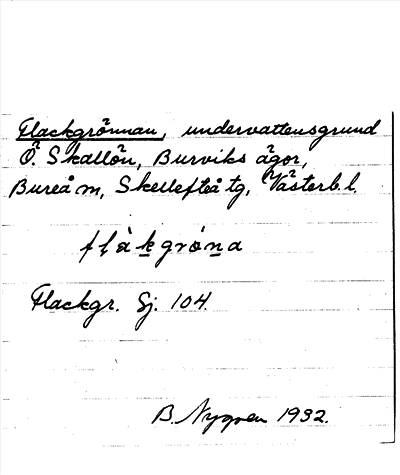 Flackgrönnan, undervattensgrund
Ö. Skallön, Burviks ägor,
Bureå m, Skellefteå tg, Västerb. l.
flàk̲gròn̲a
Flackgr. Sj. 104.
B. Nygren 1932.